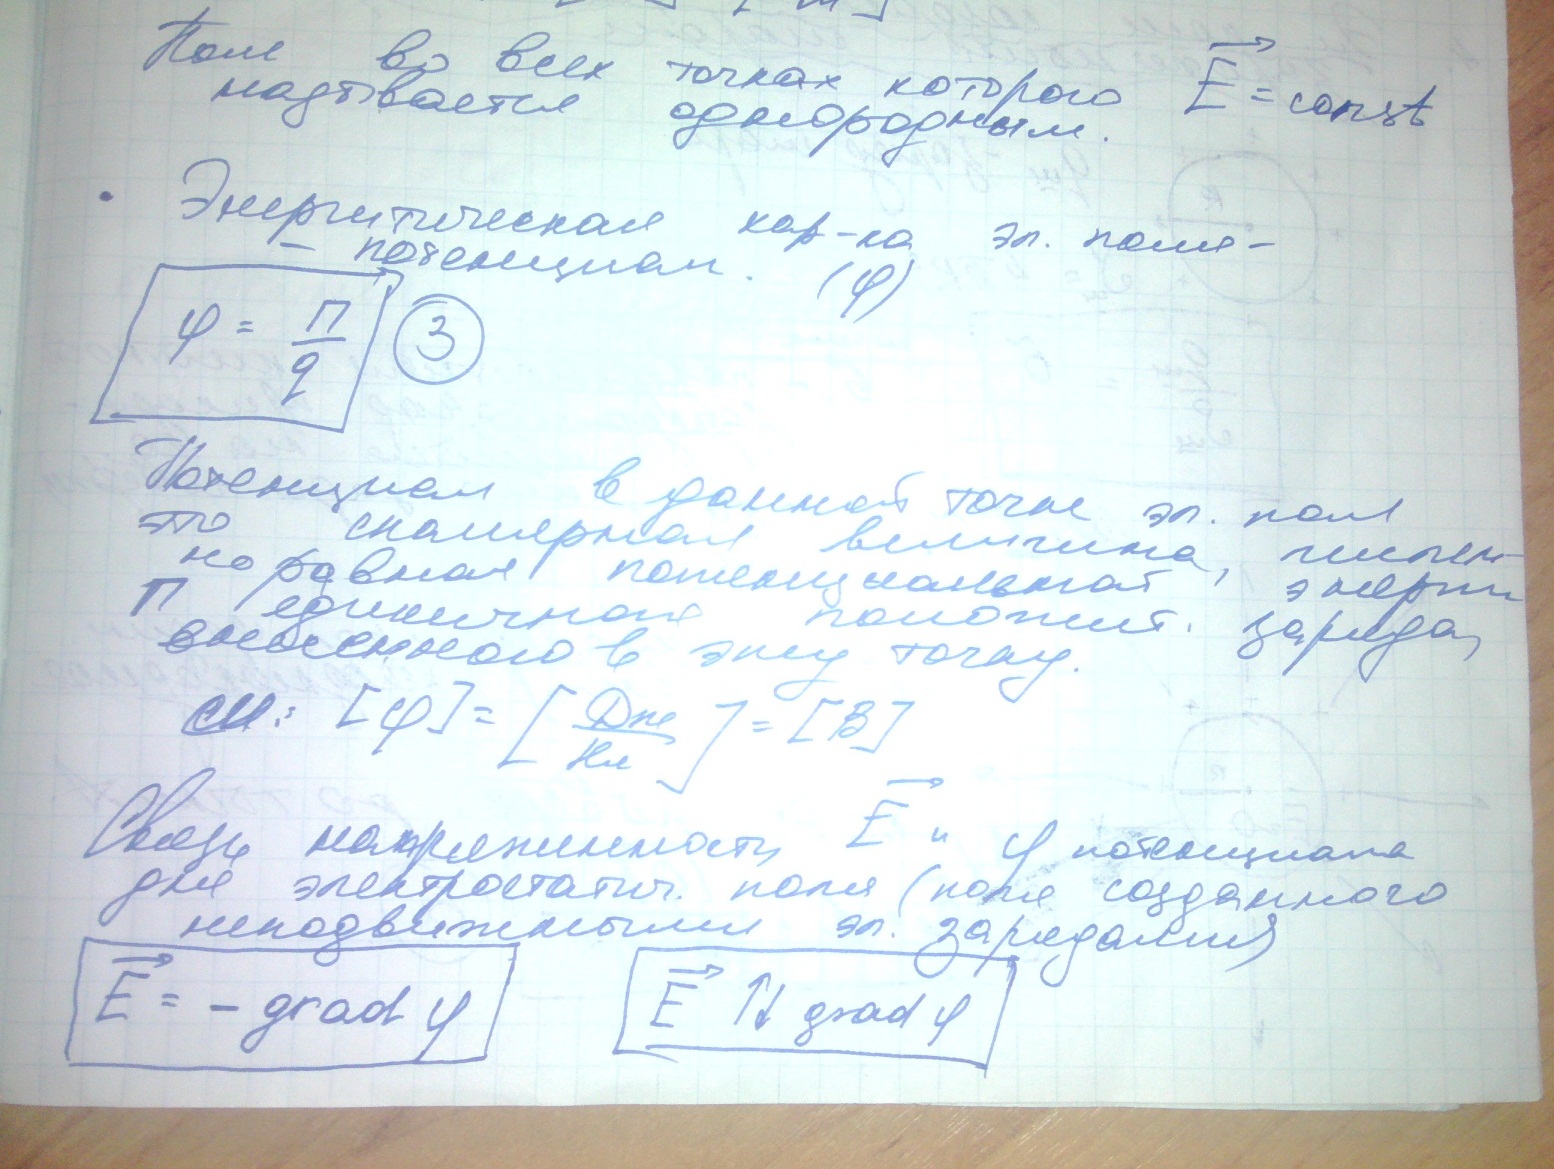 Поле во всех точках которого E⃗ = const
надывается однородным.
• Энергитическая хар-ка эл. поля -
– потенциал. (φ)
φ = П/q (3)
Потенциал в данной точке эл. поля
это скалярная величина, числен-
но равная потенциальной энергии
П единичного положит. заряда,
внесенного в эту точку.
СИ: [φ] = [Дж/Кл] = [В]
Связь напряженность E⃗ и φ потенциала
для электростатич. поля (поля созданного
неподвижными эл. зарядами)
E⃗ = - grad φ
E⃗ ↑↓ grad φ